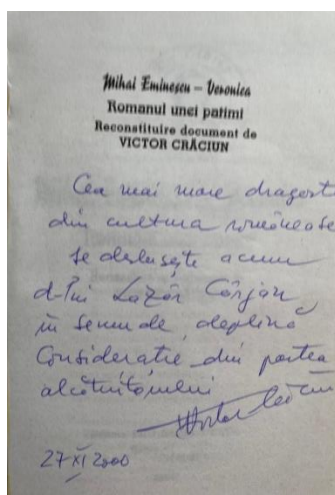 Mihai Eminescu – Veronica
Romanul unei patimi
Reconstituire document de
VICTOR CRĂCIUN
Cea mai mare dragost
din cultura românease
se deslușește acum
d-lui Lazăr Cârjan
în semn de deplină
Considerație din partea
alcătuitorului
Victor Crăciun
27 XI 2000